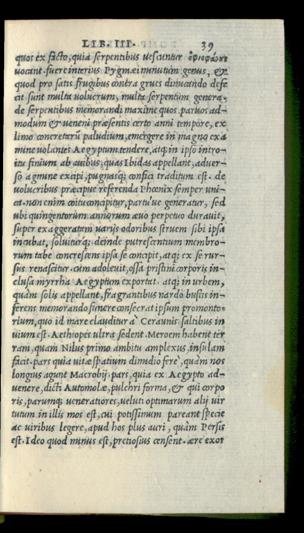 LIB. III. 39
quos ex facto, quia serpentibus uescuntur ὀφιοφάγους
uocant. fuere interius Pygmæi minutum genus, &
quod pro satis frugibus contra grues dimicando defe
cit. sunt multa uolucrum, multa serpentum genera.
de serpentibus memorandi maxime quos paruos ad-
modum & ueneni præsentis certo anni tempore, ex
limo concretarū paludium, emergere in magno exa
mine uolantes Aegyptum tendere, atq; in ipso introi-
tu finium ab auibus, quas Ibidas appellant, aduer-
so agmine excipi, pugnasq; confici traditum est. de
uolucribus præcipue referenda Phœnix semper uni-
ca. non enim coitu concipitur, partu ue generatur, sed
ubi quingentorum annorum æuo perpetuo durauit,
super exaggeratam uarijs odoribus struem sibi ipsa
incubat, soluiturq;. deinde putrescentium membro-
rum tabe concrescens ipsa se concipit, atq; ex se rur-
sus renascitur. cum adoleuit, ossa pristini corporis in-
clusa myrrha Aegyptum exportat. atq; in urbem,
quam solis appellant, flagrantibus nardo bustis in-
ferens memorando funere consecrat. ipsum promonto-
rium, quo id mare clauditur a' Ceraunis saltibus in
uium est. Aethiopes ultra sedent. Meroem habent ter
ram, quam Nilus primo ambitu amplexus, insulam
facit. pars quia uitæ spatium dimidio fere, quàm nos
longius agunt Macrobij. pars, quia ex Aegypto ad-
uenere, dicti Automolæ, pulchri forma, & qui corpo
ris, parumq; ueneratiores, ueluti optimarum alij uir
tutum in illis mos est, cui potissimum pareant specie
ac uiribus legere, apud hos plus auri, quàm Persis
est. Ideo quod minus est, pretiosius censent. ære exor